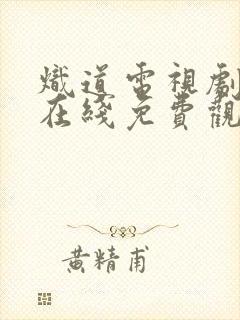 熾道電視劇
在綫免費觀
黃精甫